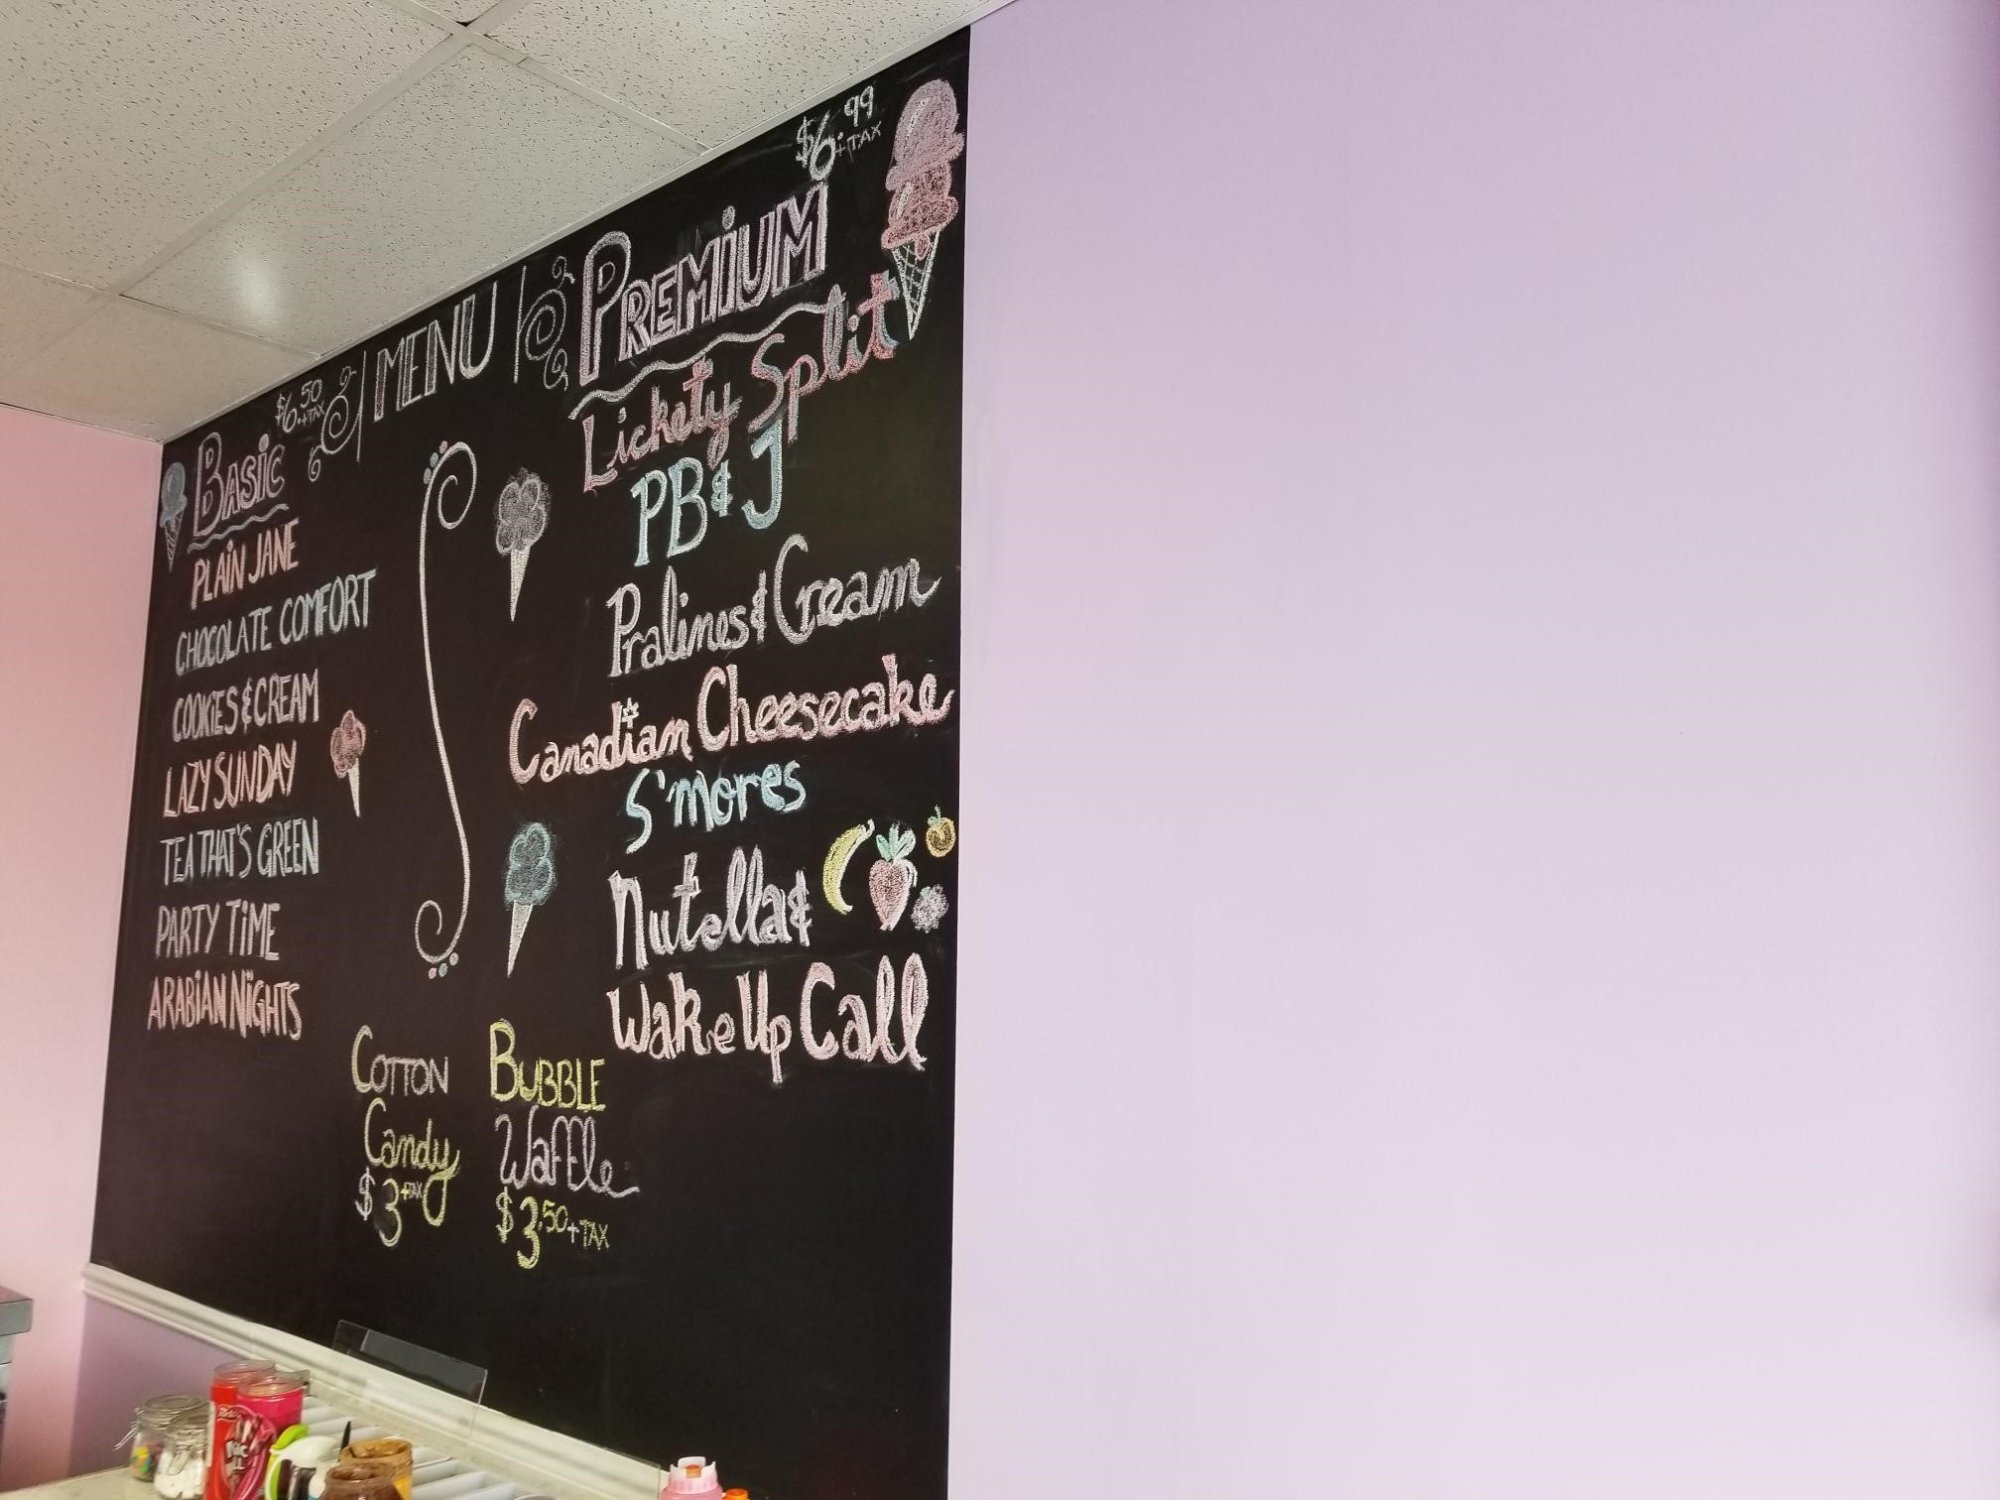 MENU
$6.50 +TAX
Basic
PLAIN JANE
CHOCOLATE COMFORT
COOKIES & CREAM
LAZY SUNDAY
TEA THAT'S GREEN
PARTY TIME
ARABIAN NIGHTS
$6.99 +TAX
PREMIUM
Lickety Split
PB & J
Pralines & Cream
Canadian Cheesecake
S'mores
Nutella &
Wake Up Call
COTTON
Candy
$3 +TAX
BUBBLE
Waffle
$3.50 + TAX